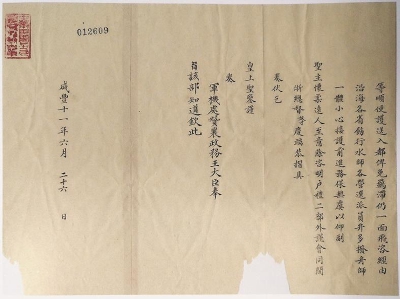 等順便護送入都俾免羈滯仍一面飛咨經由
沿海各省飭行水師各營遴派員弁多撥舟師
一體小心接護前進務保無虞以仰副
聖主懷柔遠人至意除咨明戶禮二部外謹會同閩
浙總督李慶瑞恭摺具
奏伏乞
皇上聖鑒謹
奏
軍機處贊襄政務王大臣奉
旨該部知道欽此
咸豐十一年六月 二十六 日
012609